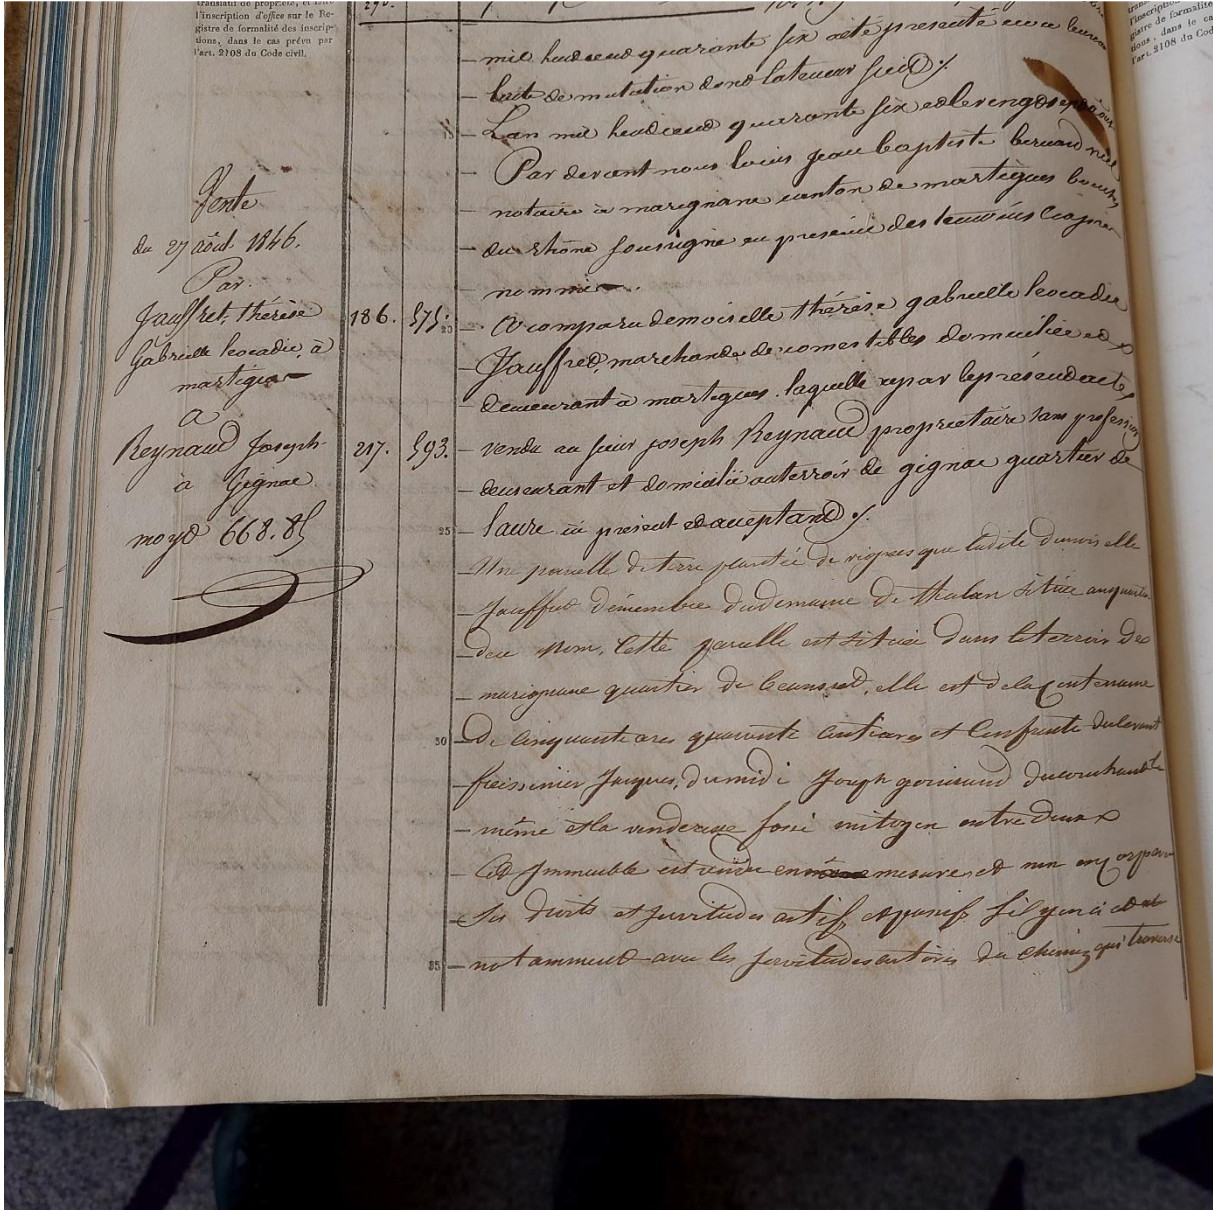 translatif de propriété, et faire
l'inscription d'office sur le Re-
gistre de formalité des inscrip-
tions, dans le cas prévu par
l'art. 2108 du Code civil.
Vente
du 27 août 1846.
Par
Jauffret thérèse
Gabrielle leocadie, à
martigues
A
Reynaud Joseph
à Gignac
moyt 668.85
186. 575.
217. 593.
mil huit cent quarante six a été présenté en ce bureau
l'acte de mutation dont la teneur suit
L'an mil huit cent quarante six et le vingt sept août
Par devant nous louis jean baptiste bernard
notaire à marignane canton de martigues bouches
du rhône soussigné en présence des temoins ci après
nommés
A comparu demoiselle thérèse gabrielle leocadie
Jauffret, marchande de comestibles domiciliée et
demeurant à martigues, laquelle a par le présent acte
vendu au sieur joseph Reynaud propriétaire sans profession
demeurant et domicilié au terroir de gignac quartier de
laure ici présent et acceptant
Une parcelle de terre plantée de vignes que ladite demoiselle
Jauffret démembre du domaine de située au quartier
de ce nom. Cette parcelle est située dans le terroir de
marignane quartier de elle est de la Contenance
De Cinquante ares quarante centiares et Confronte du levant
Jacques, du midi Joseph du couchant le
même et la venderesse fossé mitoyen entre deux
Cet Immeuble est vendu en mesure et non en corps avec
ses droits et servitudes actifs et passifs s'il y en a et
notamment avec les servitudes du chemin qui traverse
20
25
30
35